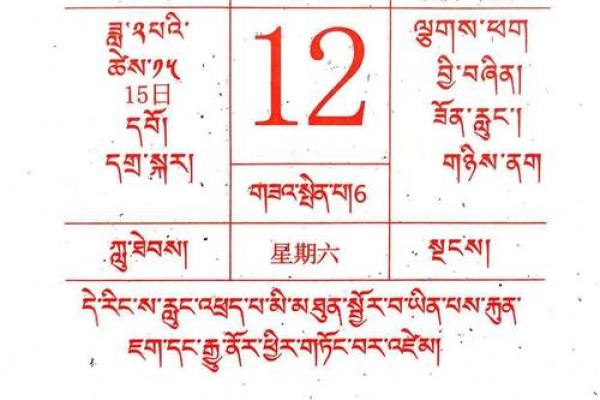 ཟླ་༢པའི་
ཚེས་༡༥
15日
དབོ།
དགྲ་སྐར།
12
གཟའ་སྤེན་པ།6
ལྕགས་ཕག
བྱི་བཞིན།
ཟོན་རླུང་།
གཉིས་ནག
ཀླུ་ཐེབས།
星期六
སྡངས།
དེ་རིང་ས་རླུང་འཕྲད་པ་མི་མཐུན་སྦྱོར་བ་ཡིན་པས་རྐུན་
ཇག་དང་རྒྱུ་ནོར་ཕྱིར་གཏོང་བར་འཛེམ།